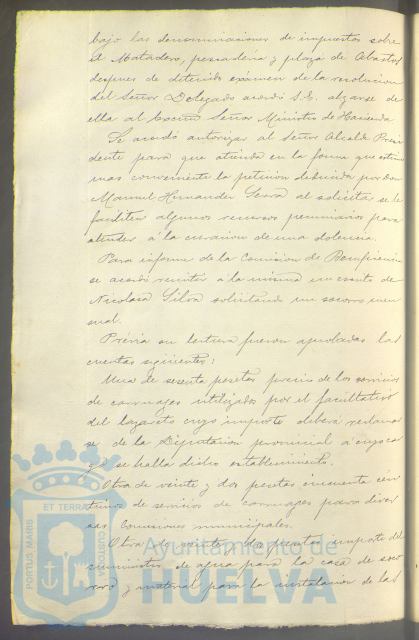 bajo las denominaciones de impuestos sobre
el Matadero, pescaderia y plaza de Abastos
despues de detenido exámen de la resolucion
del Señor Delegado acordó S.E. alzarse de
ella al Excmo Señor Ministro de Hacienda
Se acordó autorizar al Señor Alcalde Presi
dente para que atienda en la forma que estime
mas conveniente la peticion deducida por don
Manuel Hernandez Serra al solicitar se le
faciliten algunos recursos pecuniarios para
atender á la curacion de una dolencia.
Para informe de la Comision de Beneficencia
se acordó remitir á la misma un escrito de
Nicolasa Silva solicitando un socorro men
sual.
Prévia su lectura fueron aprobadas las
cuentas siguientes:
Una de sesenta pesetas precio de los servicios
de carruages utilizados por el facultativo
del lazareto cuyo importe deberá reclamar
se de la Diputacion provincial á cuyo car
go se halla dicho establecimiento.
Otra de veinte y dos pesetas cincuenta cén
timos de servicios de carruages para diver
sas Comisiones municipales.
Otra de pesetas importe del
suministro de agua para la casa de soco
rro y material para la instalacion de las
PORTUS MARIS ET TERRAE CUSTODIA
Ayuntamiento de
HUELVA